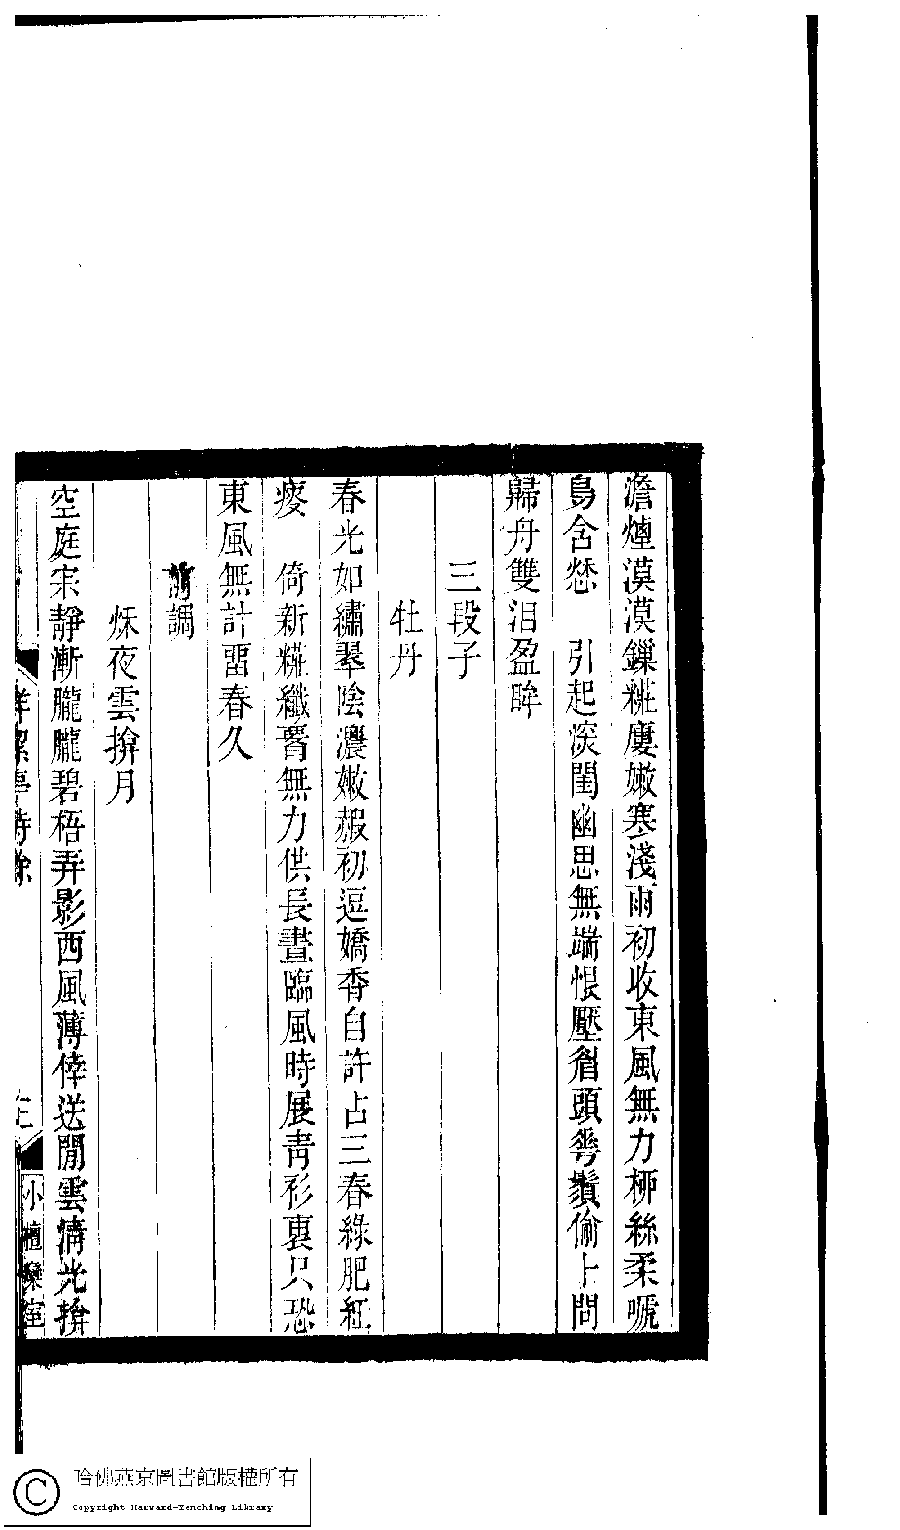 澹煙漠漠鏁粧廔嫩寒淺雨初收東風無力柳絲柔嗁
鳥含愁　引起深閨幽思無端恨壓眉頭雩鬟偷上問
歸舟雙泪盈眸
三段子
牡丹
春光如繡翠陰濃嫩赧初逗嬌香自許占三春綠肥紅
瘦　倚新糚纖䯝無力供長晝臨風時展靑衫裏只恐
東風無計畱春久
前調
秌夜雲揜月
空庭宋靜漸朧朧碧梧弄影西風薄倖送閒雲淸光揜
詳絜亭詩餘
小檀欒室
哈佛燕京圖書館版權所有
Copyright Harvard-Yenching Library